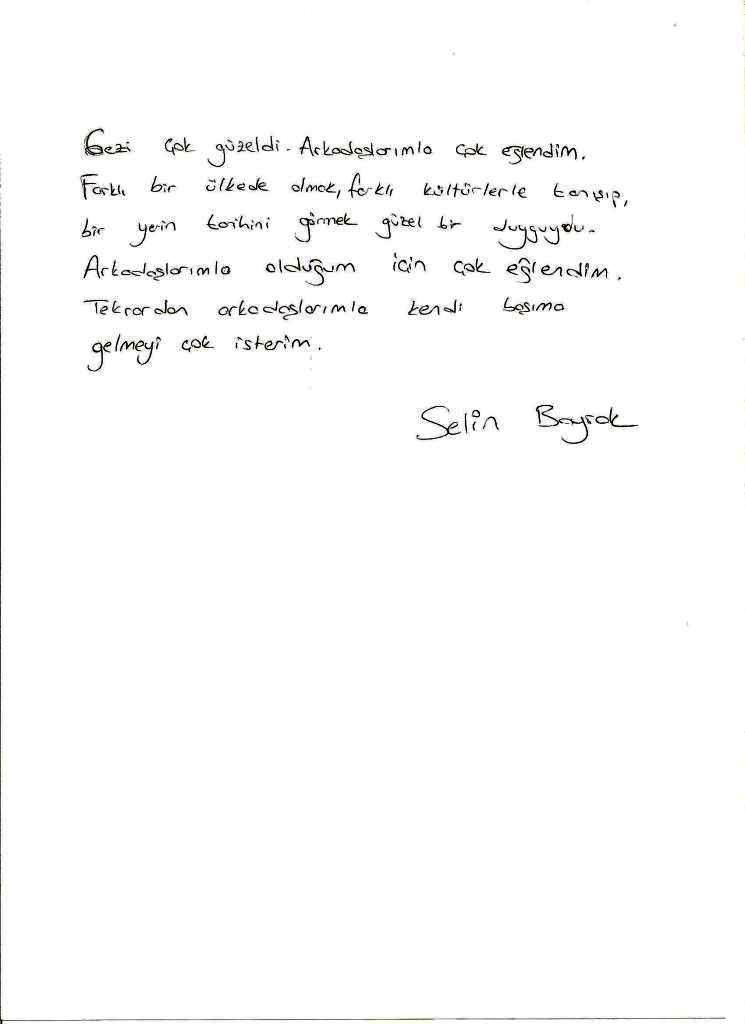 Gezi çok güzeldi. Arkadaşlarımla çok eğlendim.
Farklı bir ülkede olmak, farklı kültürlerle tanışıp,
bir yerin tarihini görmek güzel bir duyguydu.
Arkadaşlarımla olduğum için çok eğlendim.
Tekrardan arkadaşlarımla kendi başıma
gelmeyi çok isterim.
Selin Bayrak